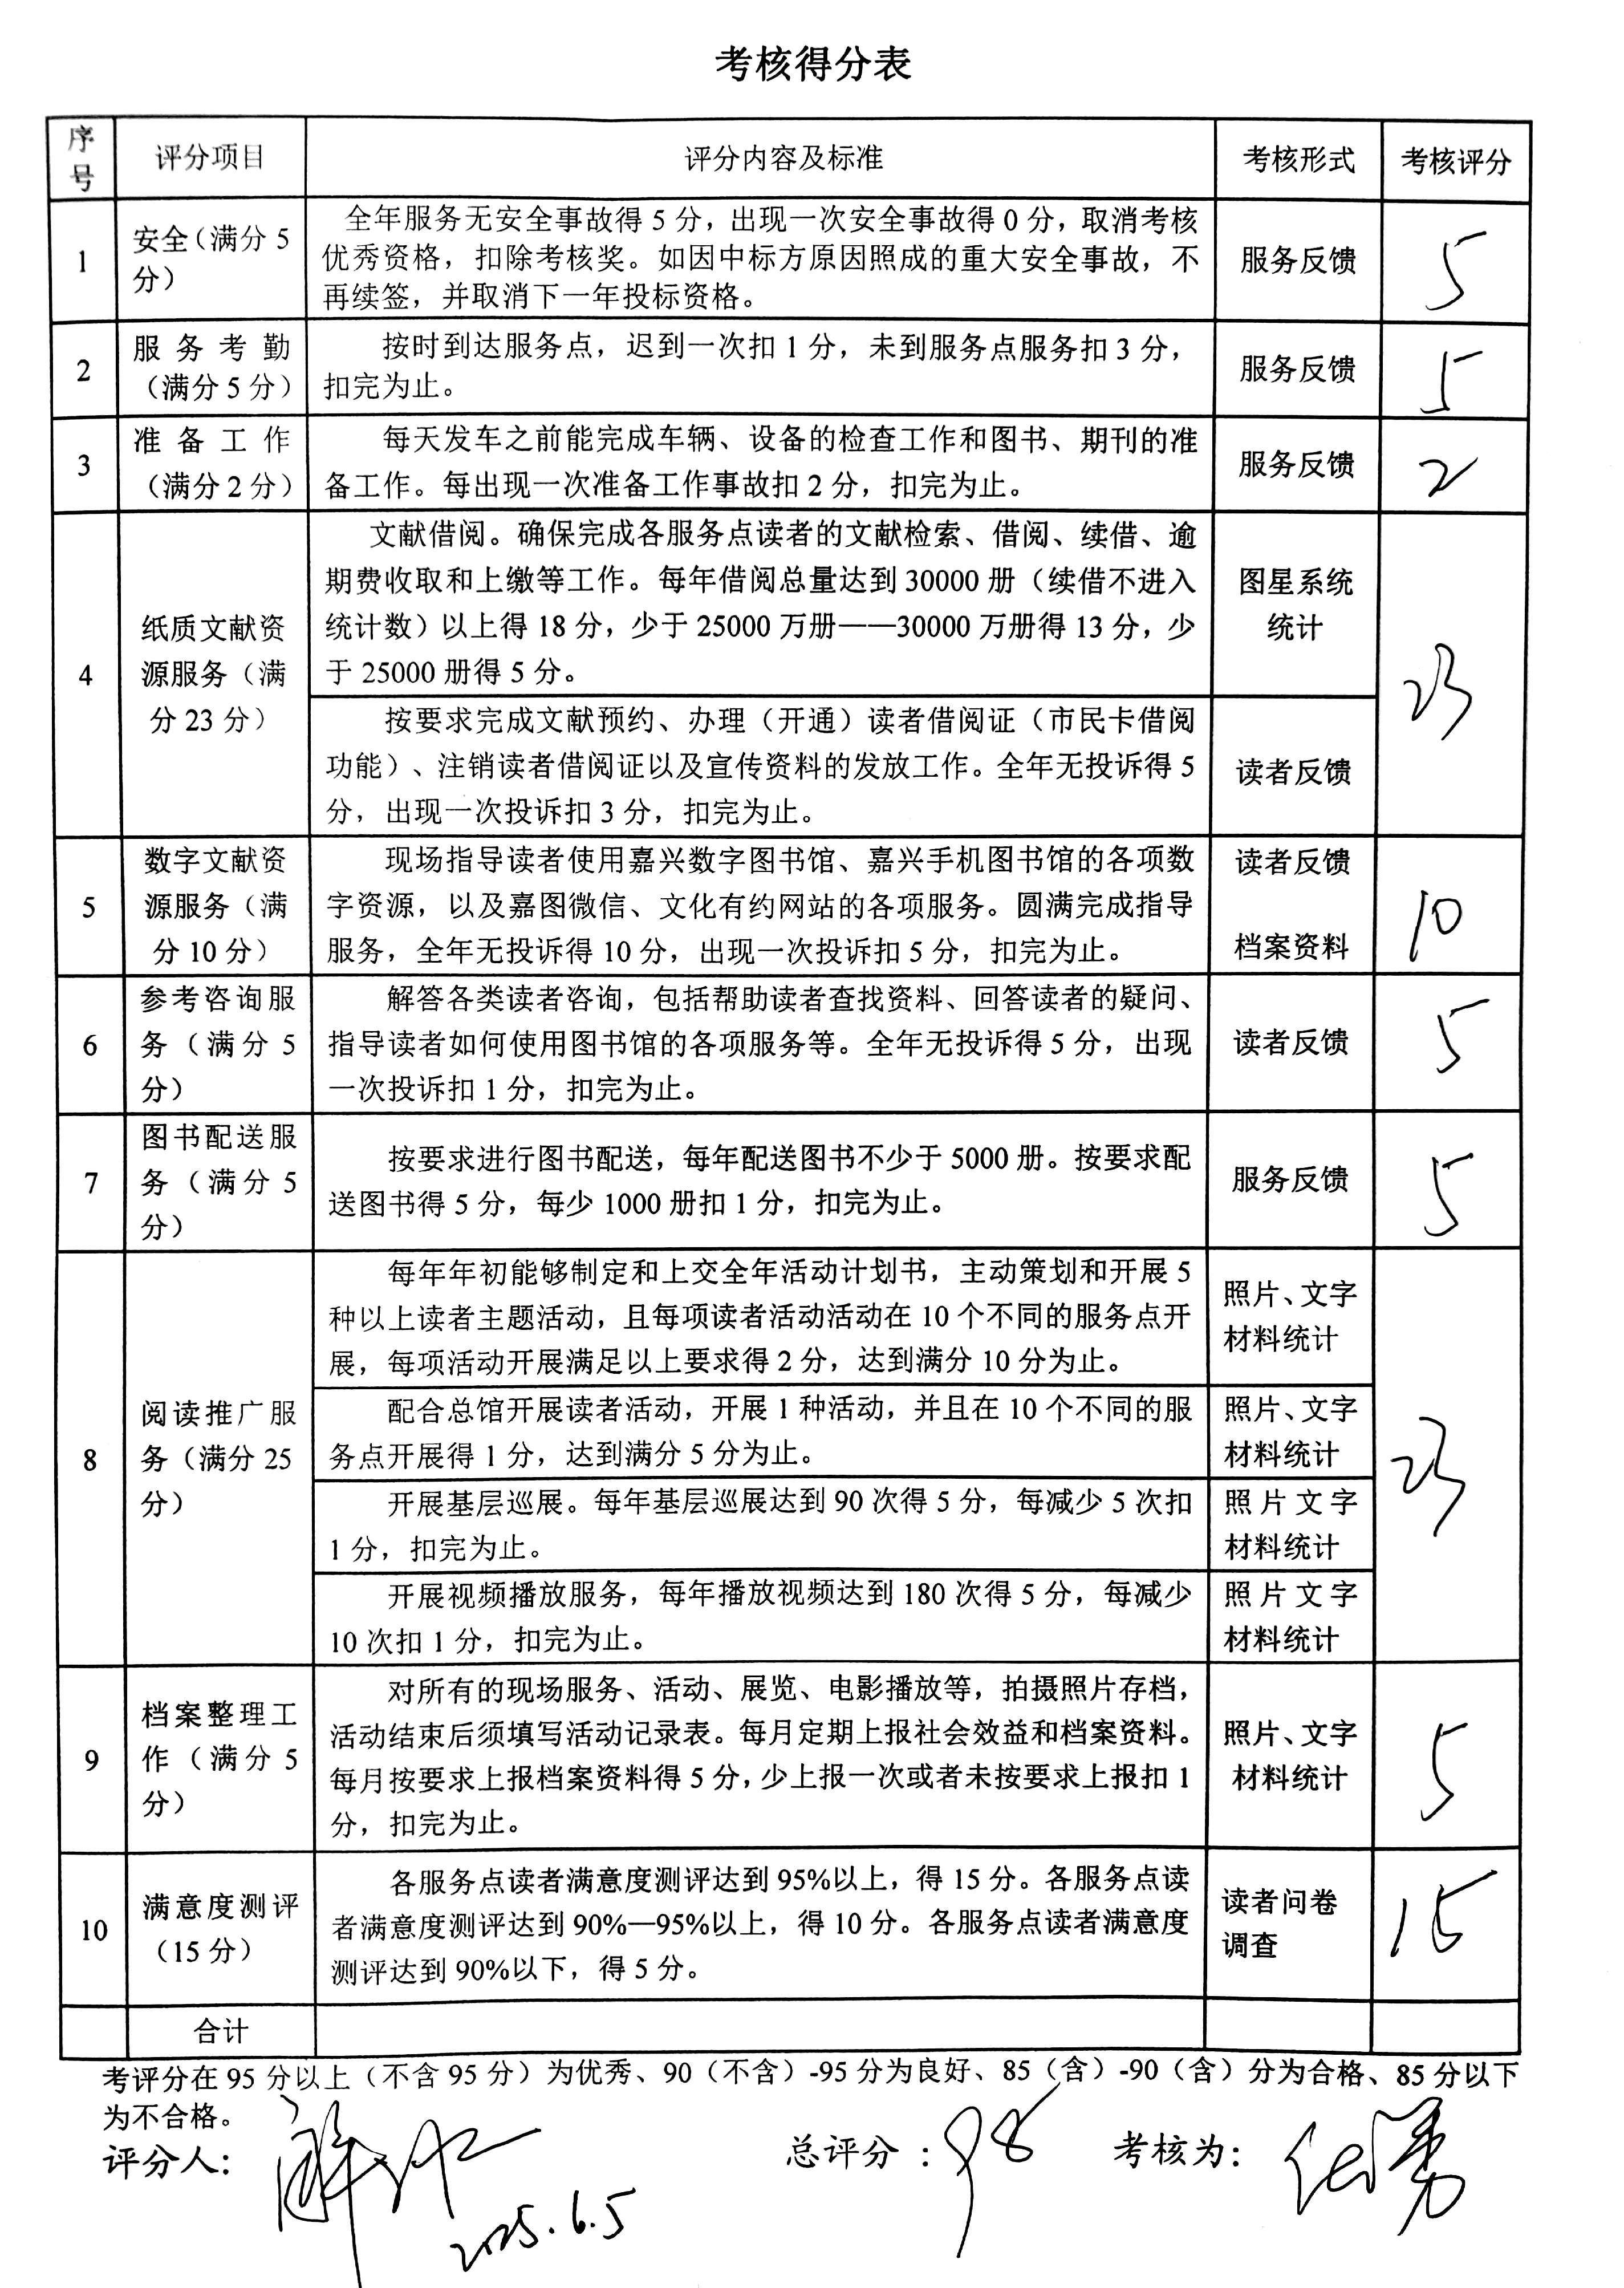 考核得分表
序号 评分项目 评分内容及标准 考核形式 考核评分
1 安全（满分5分）
全年服务无安全事故得5分，出现一次安全事故得0分，取消考核
优秀资格，扣除考核奖。如因中标方原因照成的重大安全事故，不
再续签，并取消下一年投标资格。
服务反馈 5
2 服务考勤（满分5分）
按时到达服务点，迟到一次扣1分，未到服务点服务扣3分，
扣完为止。
服务反馈 5
3 准备工作（满分2分）
每天发车之前能完成车辆、设备的检查工作和图书、期刊的准
备工作。每出现一次准备工作事故扣2分，扣完为止。
服务反馈 2
4 纸质文献资源服务（满分23分）
文献借阅。确保完成各服务点读者的文献检索、借阅、续借、逾
期费收取和上缴等工作。每年借阅总量达到30000册（续借不进入
统计数）以上得18分，少于25000万册——30000万册得13分，少
于25000册得5分。
图星系统统计
按要求完成文献预约、办理（开通）读者借阅证（市民卡借阅
功能）、注销读者借阅证以及宣传资料的发放工作。全年无投诉得5
分，出现一次投诉扣3分，扣完为止。
读者反馈
23
5 数字文献资源服务（满分10分）
现场指导读者使用嘉兴数字图书馆、嘉兴手机图书馆的各项数
字资源，以及嘉图微信、文化有约网站的各项服务。圆满完成指导
服务，全年无投诉得10分，出现一次投诉扣5分，扣完为止。
读者反馈
档案资料
10
6 参考咨询服务（满分5分）
解答各类读者咨询，包括帮助读者查找资料、回答读者的疑问、
指导读者如何使用图书馆的各项服务等。全年无投诉得5分，出现
一次投诉扣1分，扣完为止。
读者反馈 5
7 图书配送服务（满分5分）
按要求进行图书配送，每年配送图书不少于5000册。按要求配
送图书得5分，每少1000册扣1分，扣完为止。
服务反馈 5
8 阅读推广服务（满分25分）
每年年初能够制定和上交全年活动计划书，主动策划和开展5
种以上读者主题活动，且每项读者活动活动在10个不同的服务点开
展，每项活动开展满足以上要求得2分，达到满分10分为止。
照片、文字材料统计
配合总馆开展读者活动，开展1种活动，并且在10个不同的服
务点开展得1分，达到满分5分为止。
照片、文字材料统计
开展基层巡展。每年基层巡展达到90次得5分，每减少5次扣
1分，扣完为止。
照片文字材料统计
开展视频播放服务，每年播放视频达到180次得5分，每减少
10次扣1分，扣完为止。
照片文字材料统计
23
9 档案整理工作（满分5分）
对所有的现场服务、活动、展览、电影播放等，拍摄照片存档，
活动结束后须填写活动记录表。每月定期上报社会效益和档案资料。
每月按要求上报档案资料得5分，少上报一次或者未按要求上报扣1
分，扣完为止。
照片、文字材料统计
5
10 满意度测评（15分）
各服务点读者满意度测评达到95%以上，得15分。各服务点读
者满意度测评达到90%—95%以上，得10分。各服务点读者满意度
测评达到90%以下，得5分。
读者问卷调查
15
合计
考评分在95分以上（不含95分）为优秀、90（不含）-95分为良好、85（含）-90（含）分为合格、85分以下
为不合格。
评分人： 总评分：98 考核为：
2025.6.5